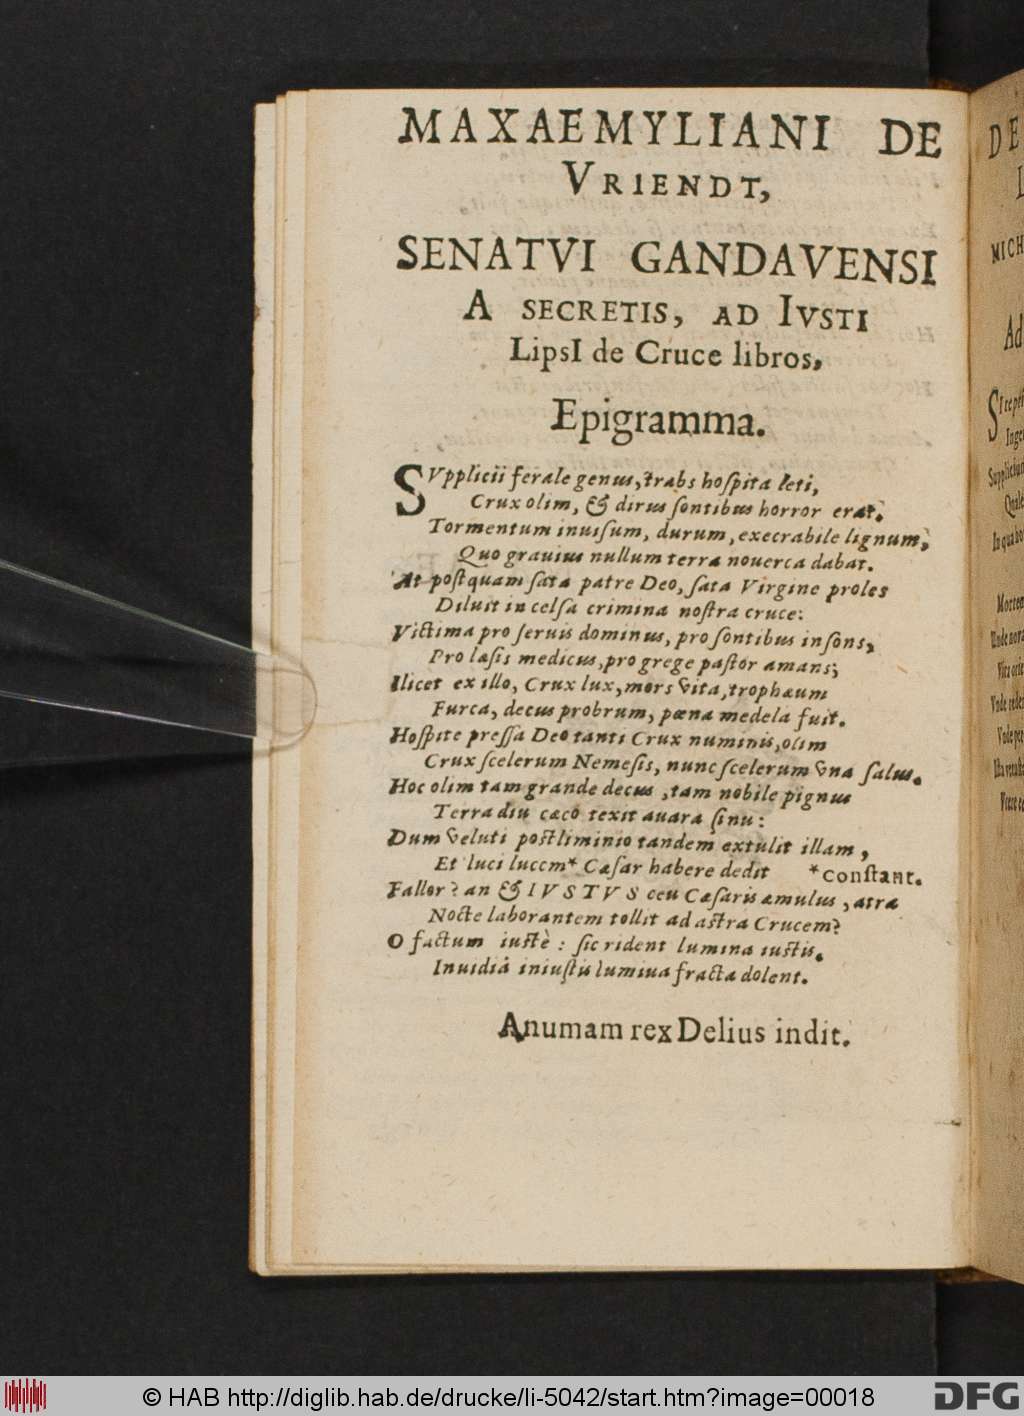 MAXAEMYLIANI DE
VRIENDT,
SENATVI GANDAVENSI
A SECRETIS, AD IVSTI
LipsI de Cruce libros,
Epigramma.
SVpplicii ferale genus, trabs hoſpita leti,
Crux olim, & dirus ſontibus horror erat.
Tormentum inuiſum, durum, execrabile lignum,
Quo grauius nullum terra nouerca dabat.
At poſtquam ſata patre Deo, ſata Virgine proles
Diluit in celſa crimina noſtra cruce:
Victima pro ſeruis dominus, pro ſontibus inſons,
Pro læſis medicus, pro grege paſtor amans;
Ilicet ex illo, Crux lux, mors vita, trophæum
Furca, decus probrum, pœna medela fuit.
Hoſpite preſſa Deo tanti Crux numinis, olim
Crux ſcelerum Nemeſis, nunc ſcelerum vna ſalus.
Hoc olim tam grande decus, tam nobile pignus
Terra diu cæco texit auara ſinu:
Dum veluti poſtliminio tandem extulit illam,
Et luci lucem* Cæſar habere dedit *conſtant.
Fallor? an & IVSTVS ceu Cæſaris æmulus, atra
Nocte laborantem tollit ad aſtra Crucem?
O factum iuſtè: ſic rident lumina iuſtis.
Inuidiâ iniuſtis lumiua fracta dolent.
Anumam rex Delius indit.
DE
MICH
Ad
© HAB http://diglib.hab.de/drucke/li-5042/start.htm?image=00018
DFG